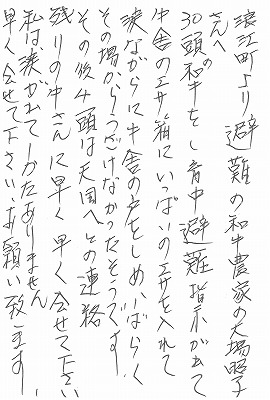 浪江町より避難の和牛農家の大場照子
さんへ
30頭の和牛をし育中避難指示が出て
牛舎のエサ箱にいっぱいのエサを入れて
涙ながらに牛舎の戸をしめしばらく
その場からうごけなかったそうです。
その後4頭は天国へとの連絡
残りの牛さんに早く早く会せて下さい
私は涙が出てしかたありません、
早く会せて下さい、お願い致します。